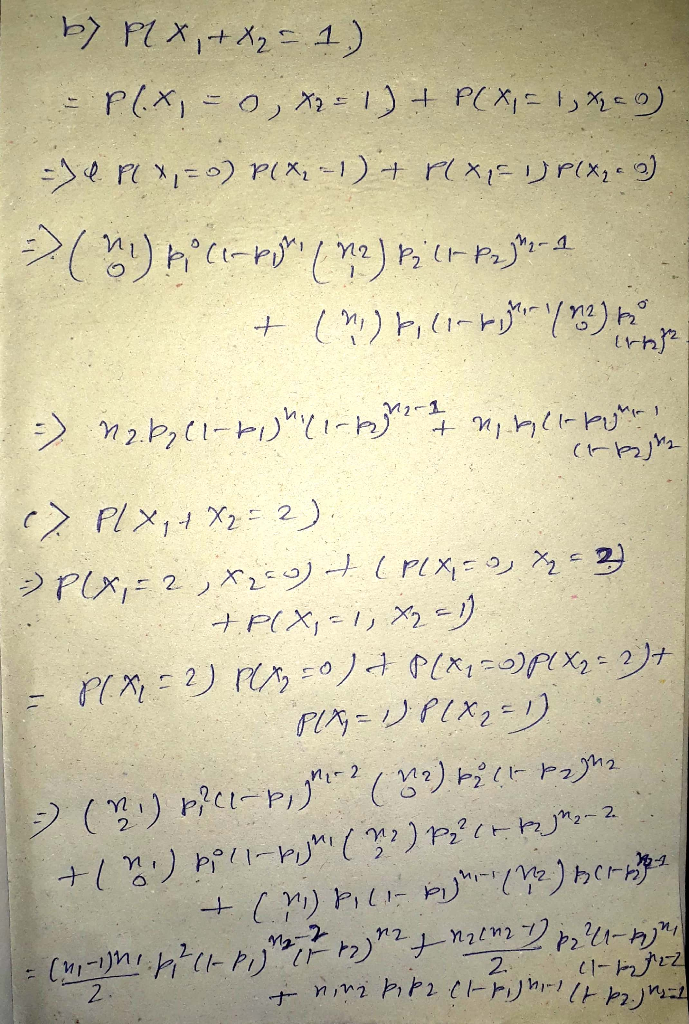 b) P(X₁+X₂ = 1)
= P(X₁ = 0, X₂ = 1) + P(X₁ = 1, X₂ = 0)
=> P(X₁=0) P(X₂=1) + P(X₁=1) P(X₂=0)
=> (n₁ 0) p₁⁰ (1-p₁)ⁿ¹ (n₂ 1) p₂¹ (1-p₂)ⁿ²⁻¹
+ (n₁ 1) p₁ (1-p₁)ⁿ¹⁻¹ (n₂ 0) p₂⁰
(1-p₂)ⁿ²
=> n₂ p₂ (1-p₁)ⁿ¹ (1-p₂)ⁿ²⁻¹ + n₁ p₁ (1-p₁)ⁿ¹⁻¹
(1-p₂)ⁿ²
c) P(X₁ + X₂ = 2)
=> P(X₁ = 2, X₂=0) + (P(X₁=0, X₂ = 2)
+ P(X₁ = 1, X₂ = 1)
= P(X₁ = 2) P(X₂ = 0) + P(X₁ = 0) P(X₂ = 2) +
P(X₁ = 1) P(X₂ = 1)
=> (n₁ 2) p₁² (1-p₁)ⁿ¹⁻² (n₂ 0) p₂⁰ (1-p₂)ⁿ²
+ (n₁ 0) p₁⁰ (1-p₁)ⁿ¹ (n₂ 2) p₂² (1-p₂)ⁿ²⁻²
+ (n₁ 1) p₁ (1-p₁)ⁿ¹⁻¹ (n₂ 1) p₂ (1-p₂)ⁿ²⁻¹
= (n₁-1)n₁/2 p₁² (1-p₁)ⁿ²⁻² (1-p₂)ⁿ² + n₂(n₂-1)/2 p₂² (1-p₁)ⁿ¹
(1-p₂)ⁿ²⁻²
+ n₁n₂ p₁p₂ (1-p₁)ⁿ¹⁻¹ (1-p₂)ⁿ²⁻¹